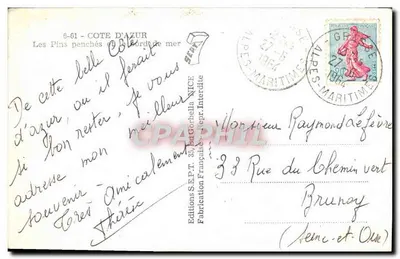 6-61 - COTE D'AZUR
Les Pins penchés en bord de mer
SEPT
De cette belle Côte
d'azur, ou il ferait
si bon rester, je vous
adresse mon meilleur
souvenir
Très Amicalement
Thérèse
Editions S.E.P.T. NICE
Fabrication Française - Repr. Interdite
ALPES-MARITIMES
GRASSE
ALPES-MARITIMES
Monsieur Raymond Lefèvre
33 Rue du Chemin vert
Brunoy
(Seine-et-Oise)